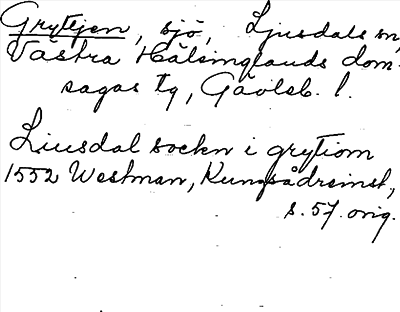 Grytjen, sjö, Ljusdals sn,
Västra Hälsinglands dom-
sagas tg, Gävleb. l.
Liusdal sockn i grytiom
1552 Westman, Kungsådreinst,
s. 57. orig.